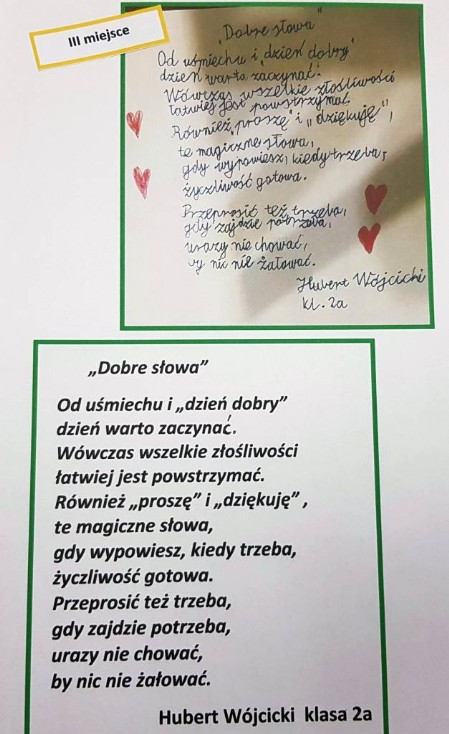 III miejsce
„Dobre słowa”
Od uśmiechu i „dzień dobry”
dzień warto zaczynać.
Wówczas wszelkie złośliwości
łatwiej jest powstrzymać.
Również „proszę” i „dziękuję”,
te magiczne słowa,
gdy wypowiesz, kiedy trzeba,
życzliwość gotowa.
Przeprosić też trzeba,
gdy zajdzie potrzeba,
urazy nie chować,
by nic nie żałować.
Hubert Wójcicki
kl. 2a
„Dobre słowa”
Od uśmiechu i „dzień dobry”
dzień warto zaczynać.
Wówczas wszelkie złośliwości
łatwiej jest powstrzymać.
Również „proszę” i „dziękuję” ,
te magiczne słowa,
gdy wypowiesz, kiedy trzeba,
życzliwość gotowa.
Przeprosić też trzeba,
gdy zajdzie potrzeba,
urazy nie chować,
by nic nie żałować.
Hubert Wójcicki klasa 2a